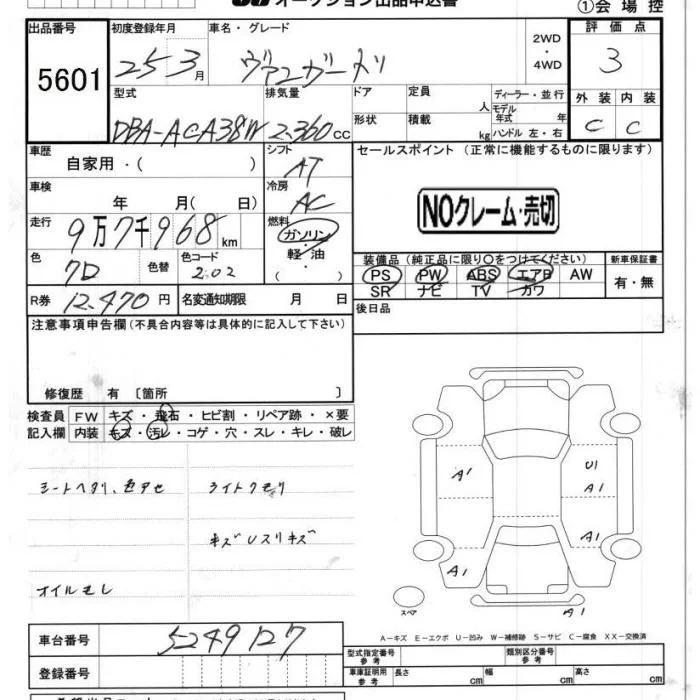 オークション出品申込書
①会場控
出品番号 初度登録年月 車名・グレード 2WD・4WD 評価点
5601 25 3月 ヴァンガード 3
型式 排気量 ドア 定員 人 ディーラー・並行 外装 内装
モデル年式 年
DBA-ACA38W 2.360cc 形状 積載 kg ハンドル 左・右 C C
車歴 自家用・( ) シフト AT セールスポイント (正常に機能するものに限ります)
車検 年 月( 日) 冷房 AC
NOクレーム・売切
走行 9万7千968km 燃料 ガソリン・軽油
色 色替 色コード 202
装備品(純正品に限り○をつけてください) 新車保証書
PS PW ABS エアB AW 有・無
SR ナビ TV カワ
R券 12.470円 名変通知期限 月 日
後日品
注意事項申告欄(不具合内容等は具体的に記入して下さい)
修復歴 有〔箇所 〕
検査員 FW キズ・飛石・ヒビ割・リペア跡・×要
記入欄 内装 キズ・汚レ・コゲ・穴・スレ・キレ・破レ
シートヘタリ、色アセ ライトクモリ
キズ U スリキズ
オイルモレ
A1 U1
A1
A1
A1 A1
スペア
A1
A−キズ E−エクボ U−凹み W−補修跡 S−サビ C−腐食 XX−交換済
車台番号 5249127
登録番号
型式指定番号 参考 類別区分番号 参考
車庫証明用 参考 長さ cm 幅 cm 高さ cm